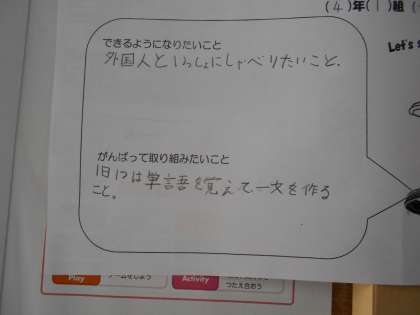 (4)年(1)組(
Let's
できるようになりたいこと
外国人といっしょにしゃべりたいこと。
がんばって取り組みたいこと
1日1つは単語を覚えて、一文を作る
こと。
Play
ゲームをしよう
Activity
つたえ合おう